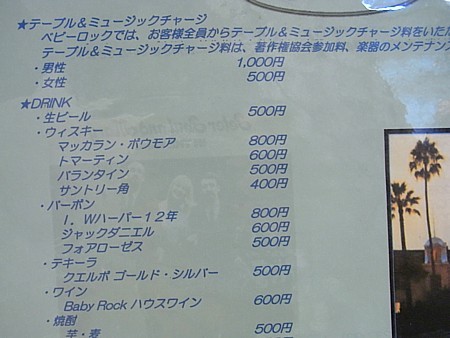 ★テーブル＆ミュージックチャージ
ベビーロックでは、お客様全員からテーブル＆ミュージックチャージ料をいただ
テーブル＆ミュージックチャージ料は、著作権協会参加料、楽器のメンテナンス
・男性 1,000円
・女性 500円
★DRINK
・生ビール 500円
・ウィスキー
マッカラン・ボウモア 800円
トマーティン 600円
バランタイン 500円
サントリー角 400円
・バーボン
Ｉ．Ｗハーパー１２年 800円
ジャックダニエル 600円
フォアローゼス 500円
・テキーラ
クエルボ ゴールド・シルバー 500円
・ワイン
Baby Rock ハウスワイン 600円
・焼酎
芋・麦 500円